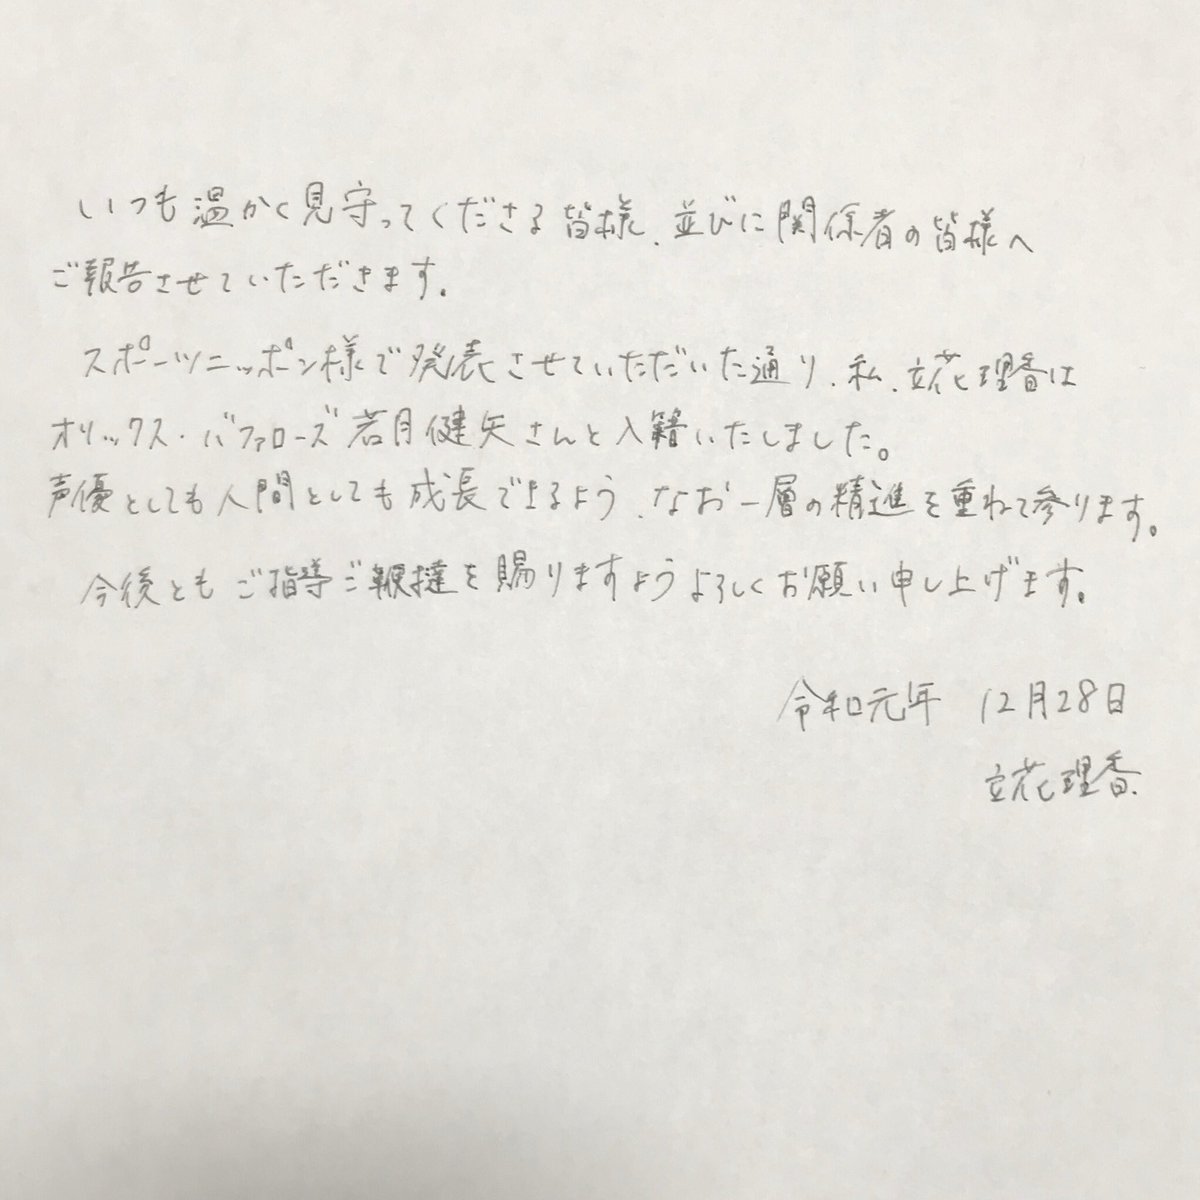 いつも温かく見守ってくださる皆様、並びに関係者の皆様へ
ご報告させていただきます。
スポーツニッポン様で発表させていただいた通り、私、立花理香は
オリックス・バファローズ若月健矢さんと入籍いたしました。
声優としても人間としても成長できるよう、なお一層の精進を重ねて参ります。
今後ともご指導ご鞭撻を賜りますようよろしくお願い申し上げます。
令和元年 12月28日
立花理香